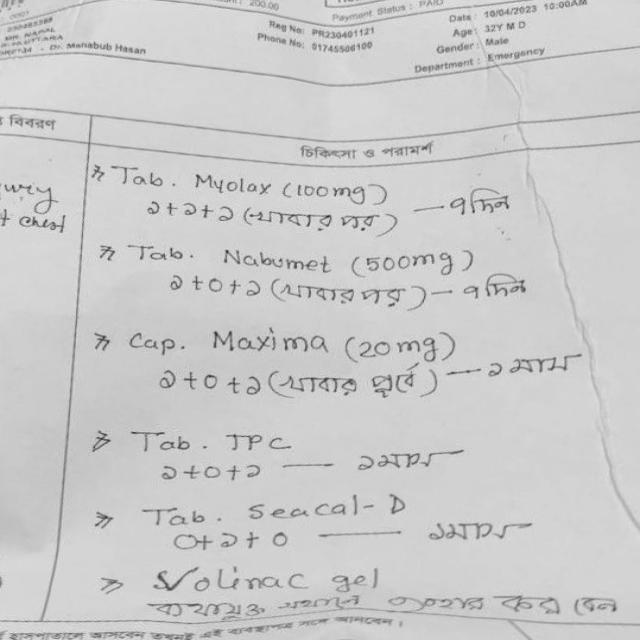 200.00
Payment Status : PAID
Date : 10/04/2023 10:00AM
Reg No: PR230401121
Age : 32Y M D
Phone No: 01745506100
Gender : Male
Dr. Mahabub Hasan
Department : Emergency
বিবরণ
চিকিৎসা ও পরামর্শ
Tab. Myolax (100mg)
১+১+১ (খাবার পর) — ৭ দিন
chest
Tab. Nabumet (500mg)
১+০+১ (খাবার পর) — ৭ দিন
Cap. Maxima (20mg)
১+০+১ (খাবার পূর্বে) — ১ মাস
Tab. TPC
১+০+১ — ১মাস
Tab. Seacal-D
০+১+০ — ১মাস
Volinac gel